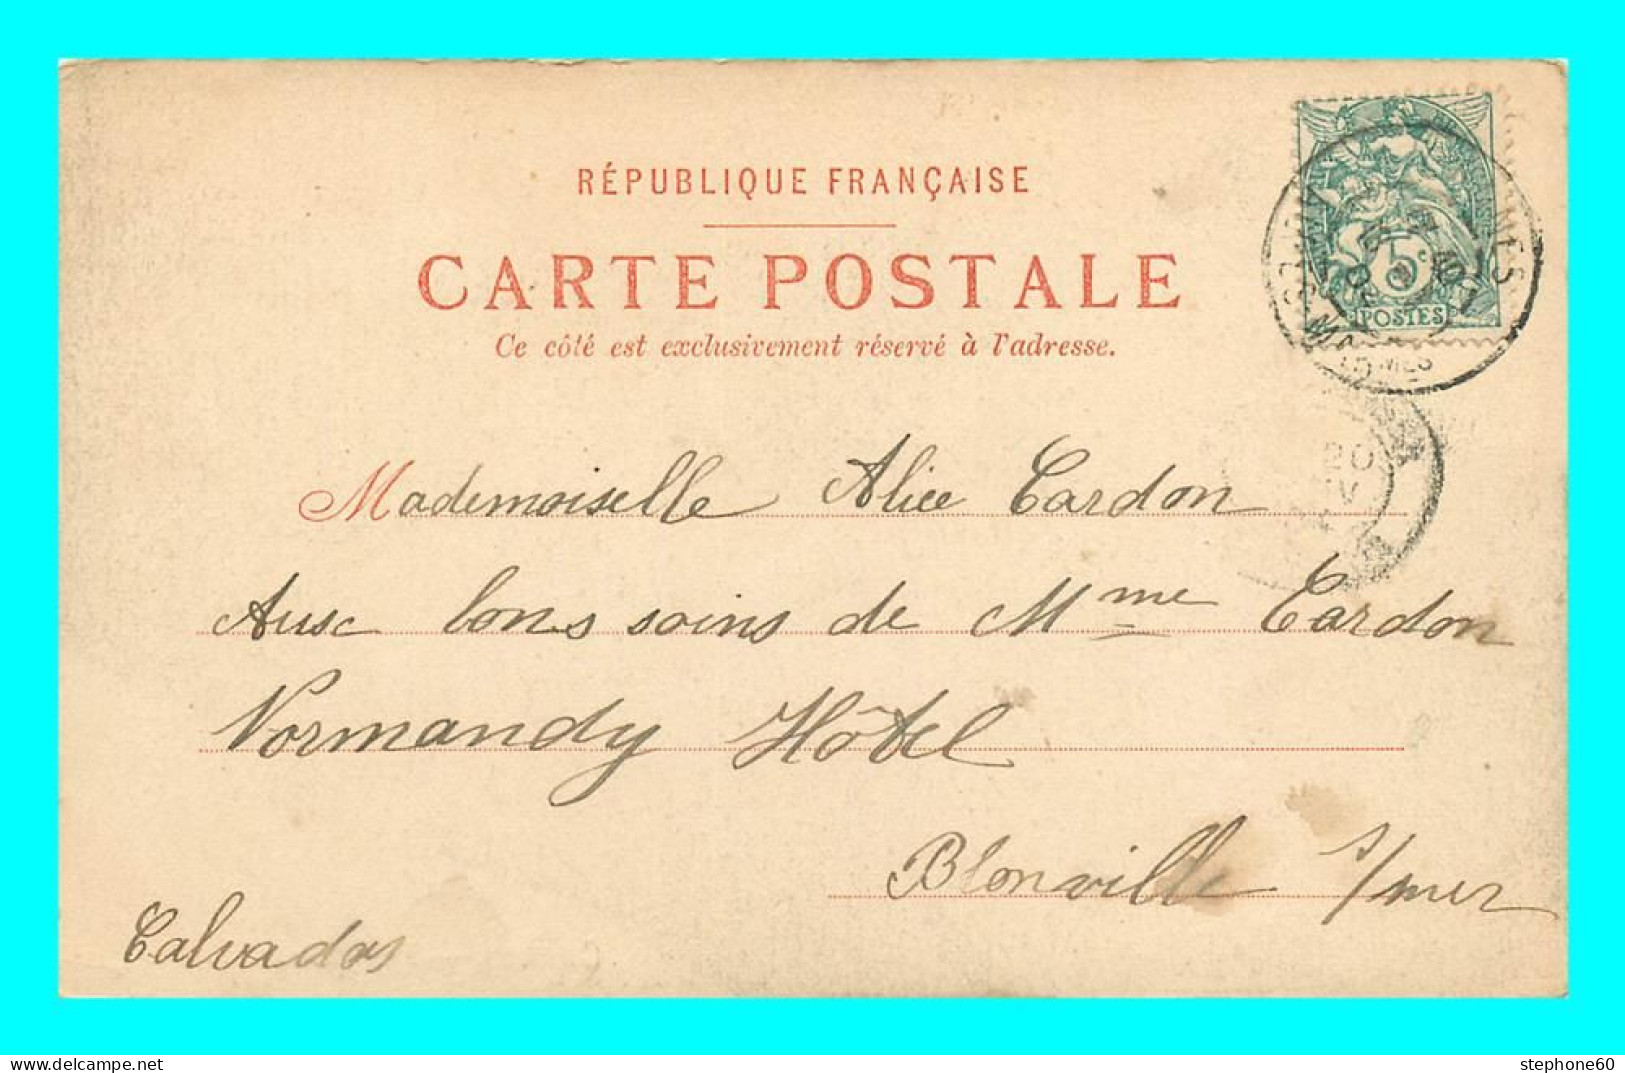 RÉPUBLIQUE FRANÇAISE
CARTE POSTALE
Ce côté est exclusivement réservé à l'adresse.
5c
POSTES
Mademoiselle Alice Cardon
Aux bons soins de Mme Cardon
Normandy Hôtel
Blonville s/mer
Calvados
stephone60